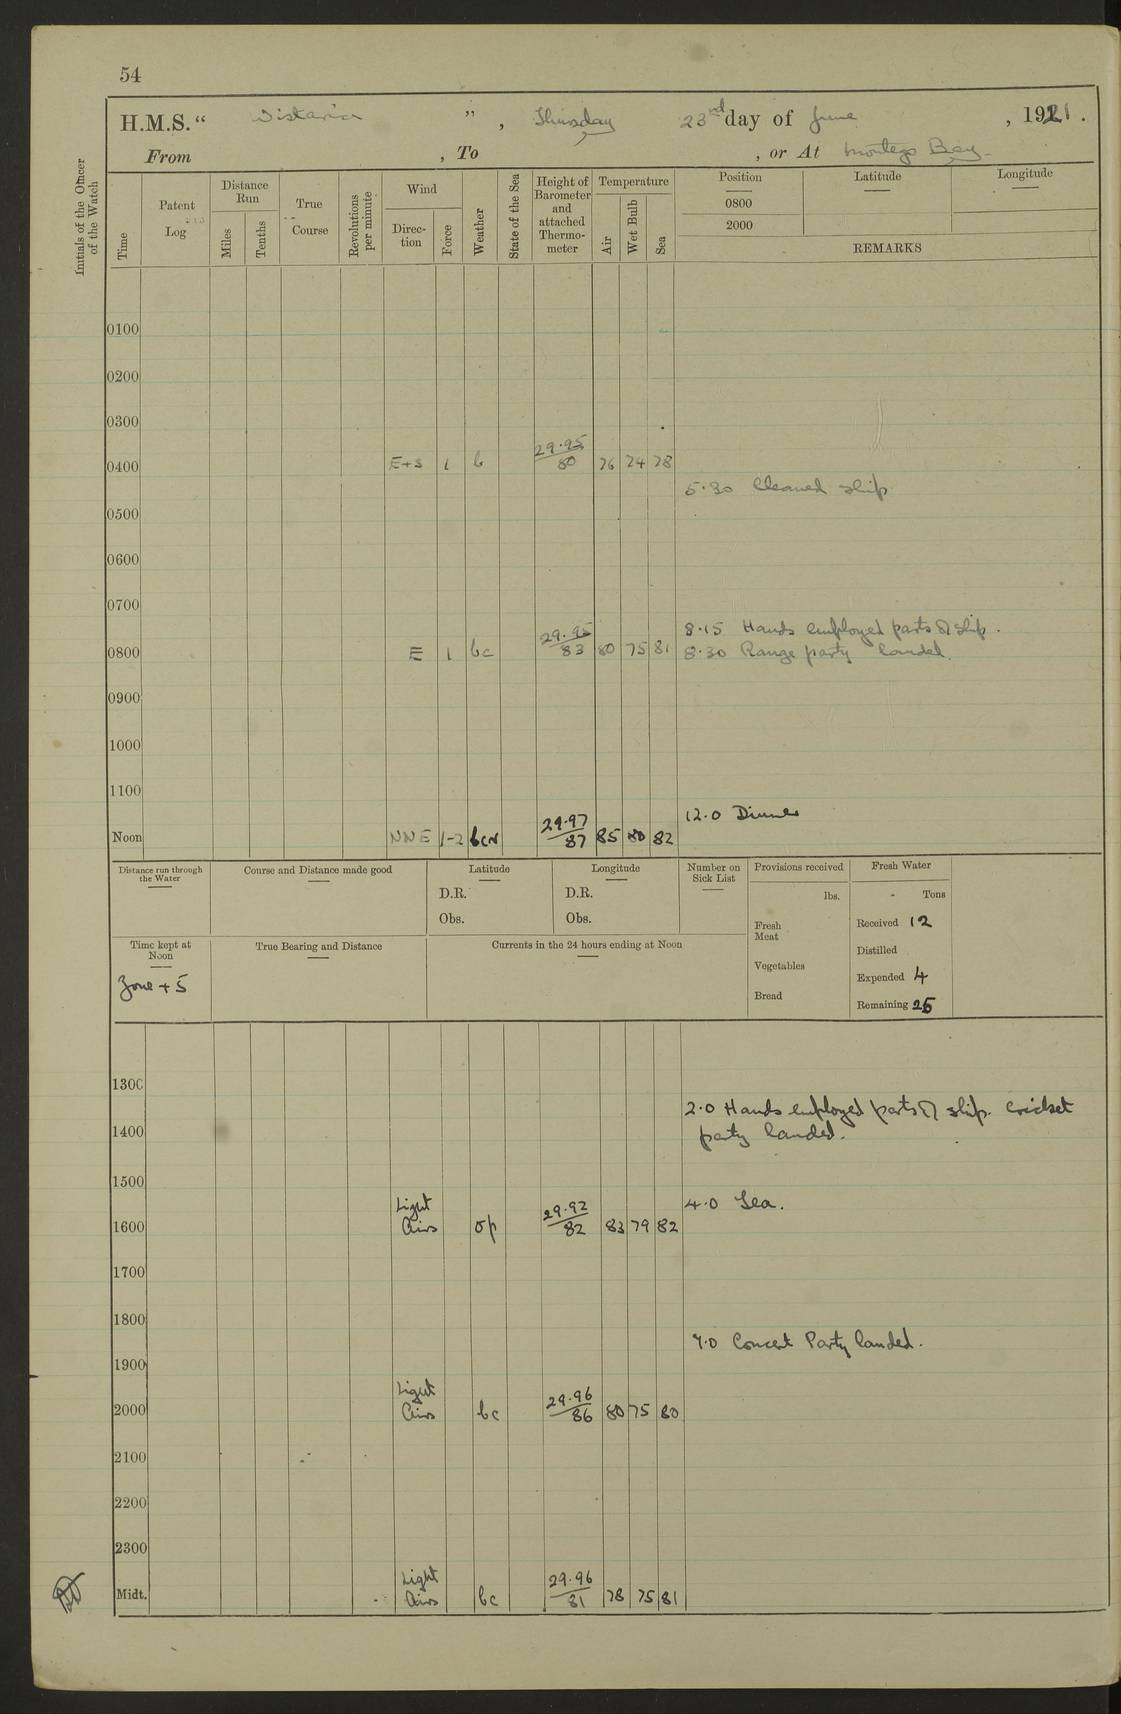 54
H.M.S. “ Wistaria ” , Thursday 23rd day of June , 1921 .
From , To , or At Montego Bay
Initials of the Officer of the Watch
Time
Patent Log
Distance Run
Miles
Tenths
True Course
Revolutions per minute
Wind
Direction
Force
Weather
State of the Sea
Height of Barometer and attached Thermometer
Temperature
Air
Wet Bulb
Sea
Position Latitude Longitude
0800
2000
REMARKS
0100
0200
0300
0400 E+S 1 b 29.95/80 76 74 78
5.30 Cleaned ship
0500
0600
0700
8.15 Hands employed parts of ship.
0800 E 1 bc 29.95/83 80 75 81 8.30 Range party landed.
0900
1000
1100
12.0 Dinner
Noon NNE 1-2 bcv 29.97/87 85 80 82
Distance run through the Water
Course and Distance made good
Latitude
D.R.
Obs.
Longitude
D.R.
Obs.
Number on Sick List
Provisions received
lbs.
Fresh Meat
Vegetables
Bread
Fresh Water
Tons
Received 12
Distilled
Expended 4
Remaining 25
Time kept at Noon
Zone + 5
True Bearing and Distance
Currents in the 24 hours ending at Noon
1300
2.0 Hands employed parts of ship. Cricket
party landed.
1400
1500
4.0 Tea.
1600 Light Airs op 29.92/82 83 79 82
1700
1800
7.0 Concert Party landed.
1900
2000 Light Airs bc 29.96/86 80 75 80
2100
2200
2300
Midt. Light Airs bc 29.96/81 78 75 81